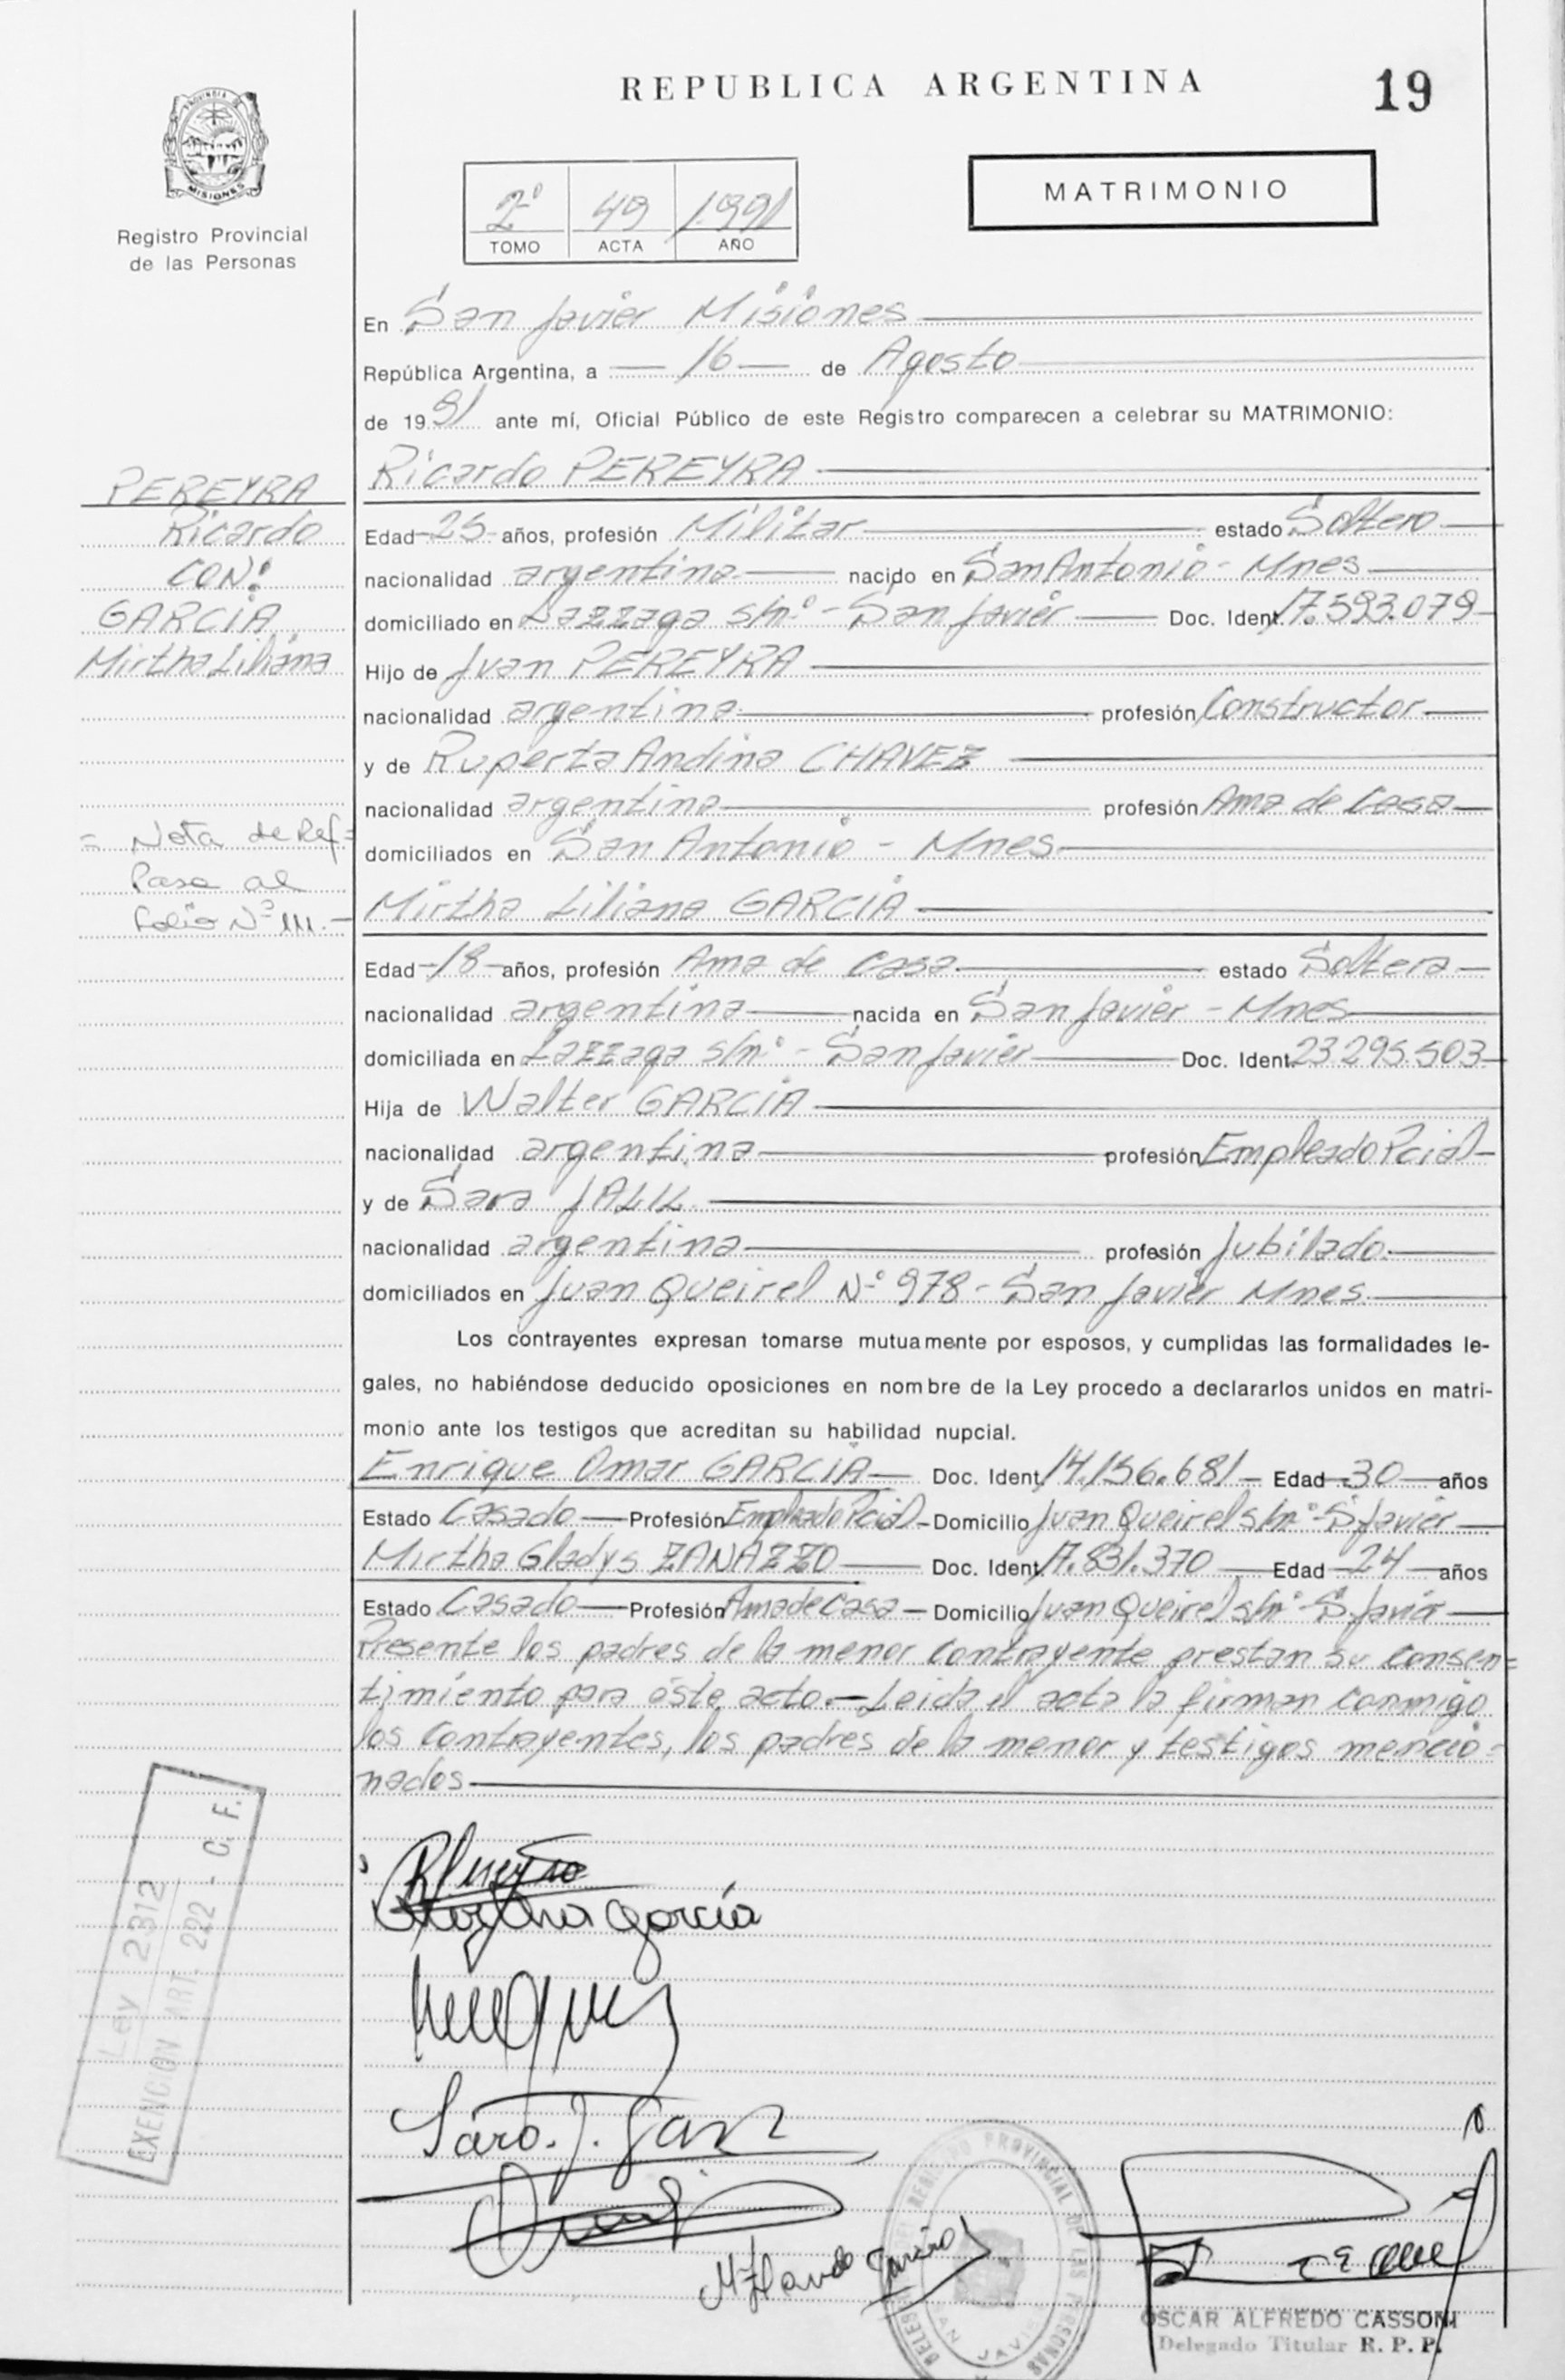 REPUBLICA ARGENTINA
19
PROVINCIA DE
MISIONES
Registro Provincial
de las Personas
2º 49 1991
TOMO ACTA AÑO
MATRIMONIO
En San Javier Misiones
República Argentina, a 16 de Agosto
de 1991 ante mí, Oficial Público de este Registro comparecen a celebrar su MATRIMONIO:
PEREYRA
Ricardo
CON:
GARCIA
Mirtha Liliana
= Nota de Ref=
Pasa al
folio Nº 111.-
Ricardo PEREYRA
Edad 25 años, profesión Militar estado Soltero
nacionalidad argentina nacido en San Antonio - Mnes
domiciliado en Lazzaga s/nº - San Javier Doc. Ident. 17.593.079
Hijo de Juan PEREYRA
nacionalidad argentina profesión Constructor
y de Ruperta Andina CHAVEZ
nacionalidad argentina profesión Ama de Casa
domiciliados en San Antonio - Mnes
Mirtha Liliana GARCIA
Edad 18 años, profesión Ama de Casa estado Soltera
nacionalidad argentina nacida en San Javier - Mnes
domiciliada en Lazzaga s/nº - San Javier Doc. Ident. 23.295.503
Hija de Walter GARCIA
nacionalidad argentina profesión Empleado Pcial
y de Sara JALIL
nacionalidad argentina profesión Jubilado
domiciliados en Juan Queirel Nº 978 - San Javier Mnes
Los contrayentes expresan tomarse mutuamente por esposos, y cumplidas las formalidades le-
gales, no habiéndose deducido oposiciones en nombre de la Ley procedo a declararlos unidos en matri-
monio ante los testigos que acreditan su habilidad nupcial.
Enrique Omar GARCIA Doc. Ident. 14.156.681 Edad 30 años
Estado Casado Profesión Empleado Pcial Domicilio Juan Queirel s/nº - S. Javier
Mirtha Gladys ZANAZZO Doc. Ident. 17.831.370 Edad 24 años
Estado Casado Profesión Ama de Casa Domicilio Juan Queirel s/nº - S. Javier
Presente los padres de la menor contrayente prestan su consen=
timiento para éste acto.- Leida el acta la firman conmigo
los contrayentes, los padres de la menor y testigos mencio=
nados
Ley 2312
EXENCION ART. 222 - C. F.
García
Sara. J.
DEL REGISTRO PROVINCIAL DE LAS PERSONAS
SAN JAVIER
OSCAR ALFREDO CASSONI
Delegado Titular R. P. P.